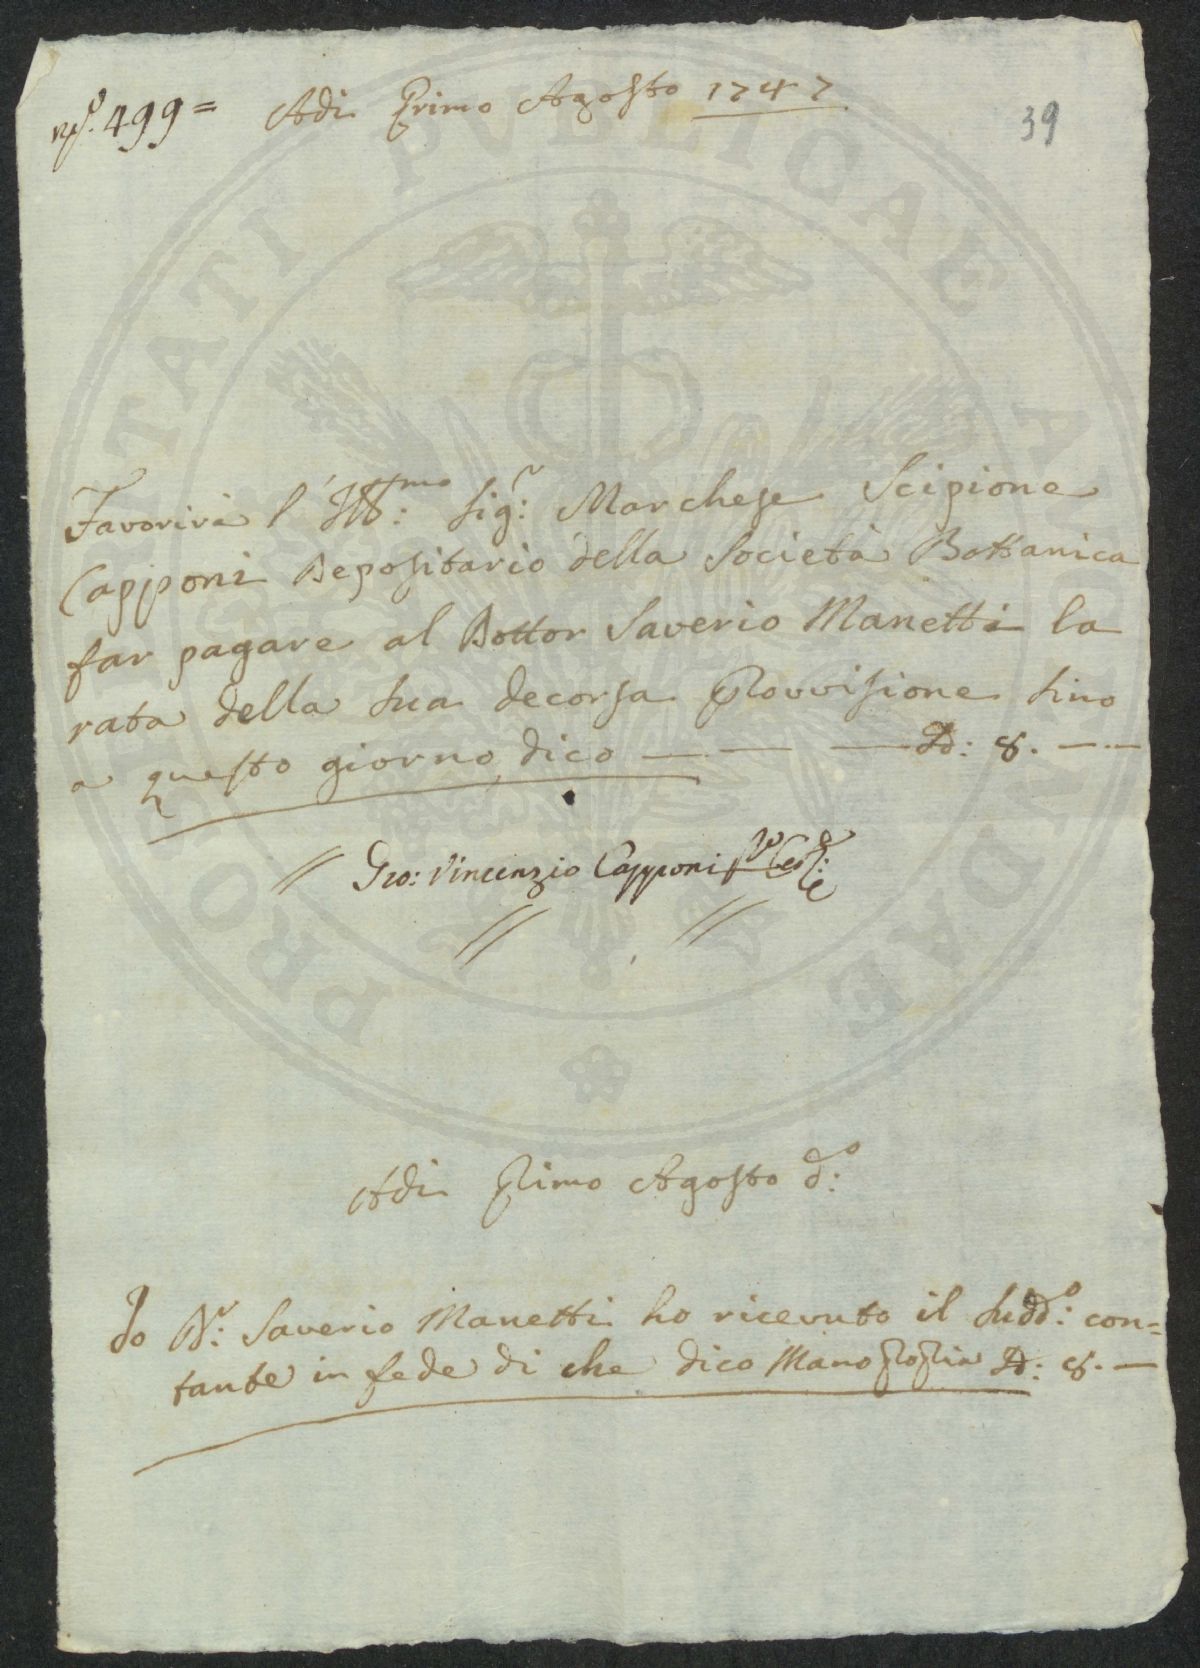 nº. 499 =
Adi Primo Agosto 1747
39
Favorirà l'Ill:mo Sigr: Marchese Scipione
Capponi Depositario della Società Bottanica
far pagare al Dottor Saverio Manetti la
rata della Sua decorsa Provvisione Sino
a questo giorno, dico — — — D: 8. — —
Gio: Vincenzio Capponi
Adi Primo Agosto do:
Io Dr: Saverio Manetti ho ricevuto il Suddo: con=
tante in fede di che dico Mano Propria D: 8. —
PROSPERITATI PUBLICAE AUGENDAE